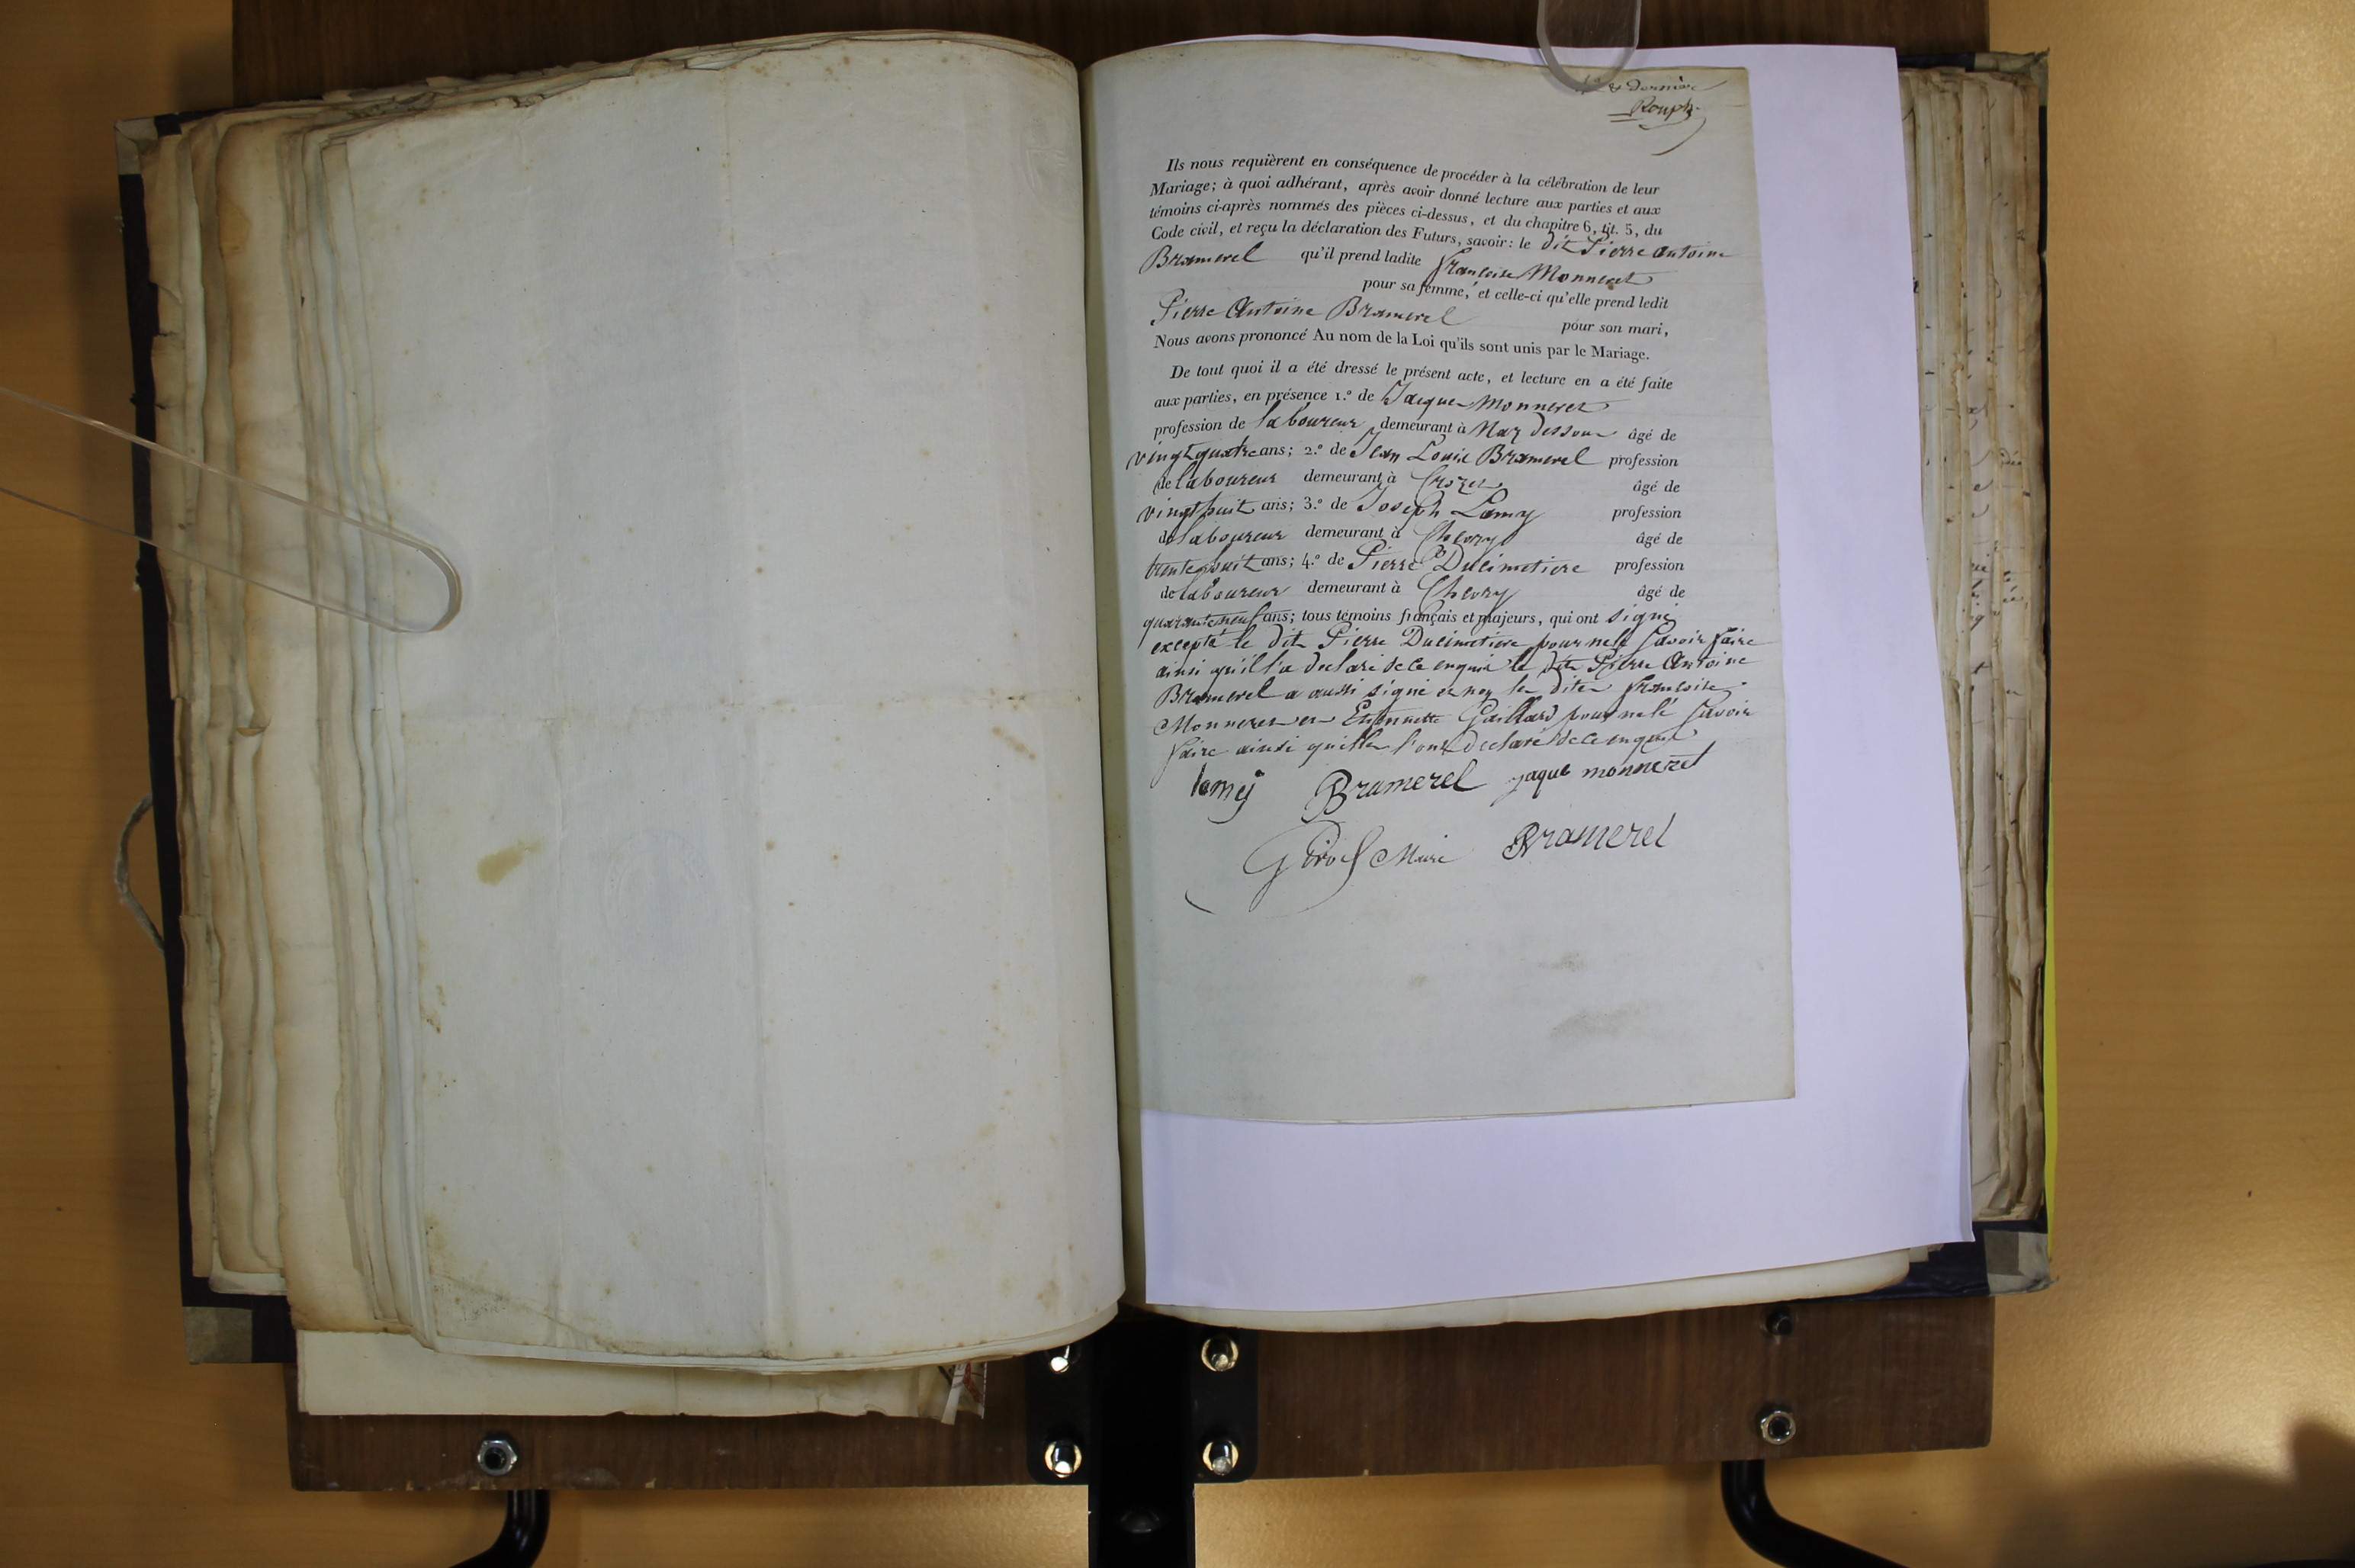 & Dernière
Rouph
Ils nous requièrent en conséquence de procéder à la célébration de leur
Mariage; à quoi adhérant, après avoir donné lecture aux parties et aux
témoins ci-après nommés des pièces ci-dessus, et du chapitre 6, tit. 5, du
Code civil, et reçu la déclaration des Futurs, savoir: le dit Pierre Antoine
Bramerel qu'il prend ladite françoise Monneret
pour sa femme, et celle-ci qu'elle prend ledit
Pierre Antoine Bramerel pour son mari,
Nous avons prononcé Au nom de la Loi qu'ils sont unis par le Mariage.
De tout quoi il a été dressé le présent acte, et lecture en a été faite
aux parties, en présence 1.º de Jacques Monneret
profession de laboureur demeurant à Naz dessous âgé de
vingt quatre ans; 2.º de Jean Louis Bramerel profession
de laboureur demeurant à Crozet âgé de
vingt huit ans; 3.º de Joseph Lamy profession
de laboureur demeurant à Chevry âgé de
trente huit ans; 4.º de Pierre Ducimetiere profession
de laboureur demeurant à Chevry âgé de
quarante neuf ans; tous témoins français et majeurs, qui ont signé
excepté le dit Pierre Ducimetiere pour ne le savoir faire
ainsi qu'il l'a declaré de ce enquis le dit Pierre Antoine
Bramerel a aussi signé et non les dites francoise
Monneret et Etiennette Gaillard pour ne le savoir
faire ainsi qu'elles l'ont declaré de ce enquis
lamy Bramerel jaque monneret
Girod Maire Bramerel